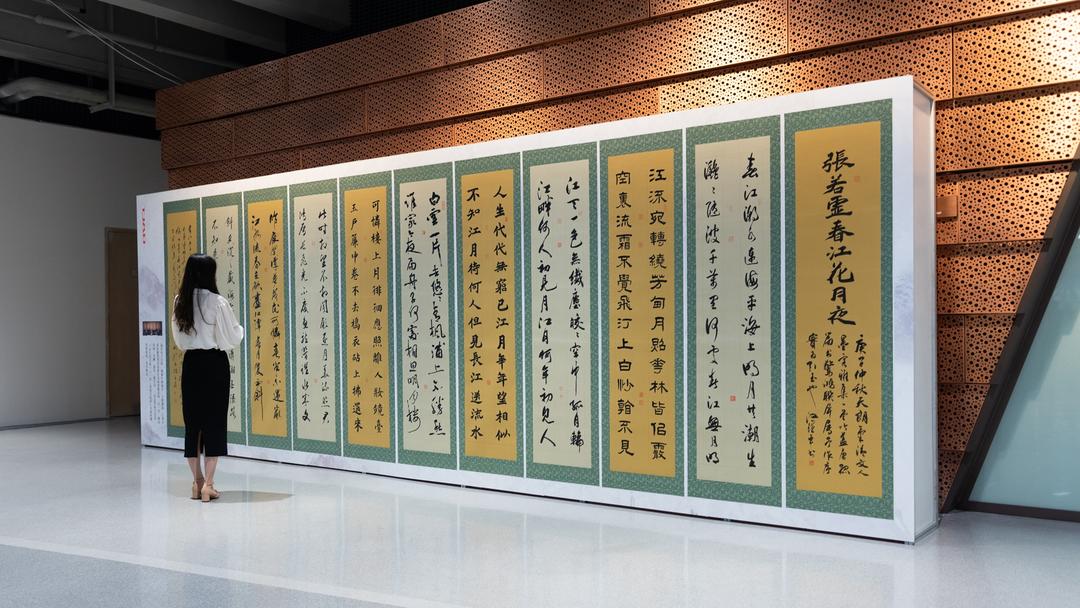 張若虛春江花月夜
庚子仲秋天朗雲清文人
春江潮水連海平海上明月共潮生
灧〻隨波千萬里何處春江無月明
江流宛轉繞芳甸月照華林皆侣霰
空裏流霜不覺飛汀上白沙看不見
江天一色無纖塵皎〻空中孤月輪
江畔何人初見月江月何年初見人
人生代代無窮已江月年年望相似
不知江月待何人但見長江送流水
白雲一片去悠〻青楓浦上不勝愁
誰家今夜扁舟子何處相思明月樓
可憐樓上月徘徊應照離人妝鏡臺
玉戶簾中卷不去搗衣砧上拂還來
此時相望不相聞願逐月華流照君
鴻雁長飛光不度魚龍潛躍水成文
昨夜閑潭夢落花可憐春半不還家
江水流春去欲盡江潭落月復西斜
斜月沉〻藏海
不知乘